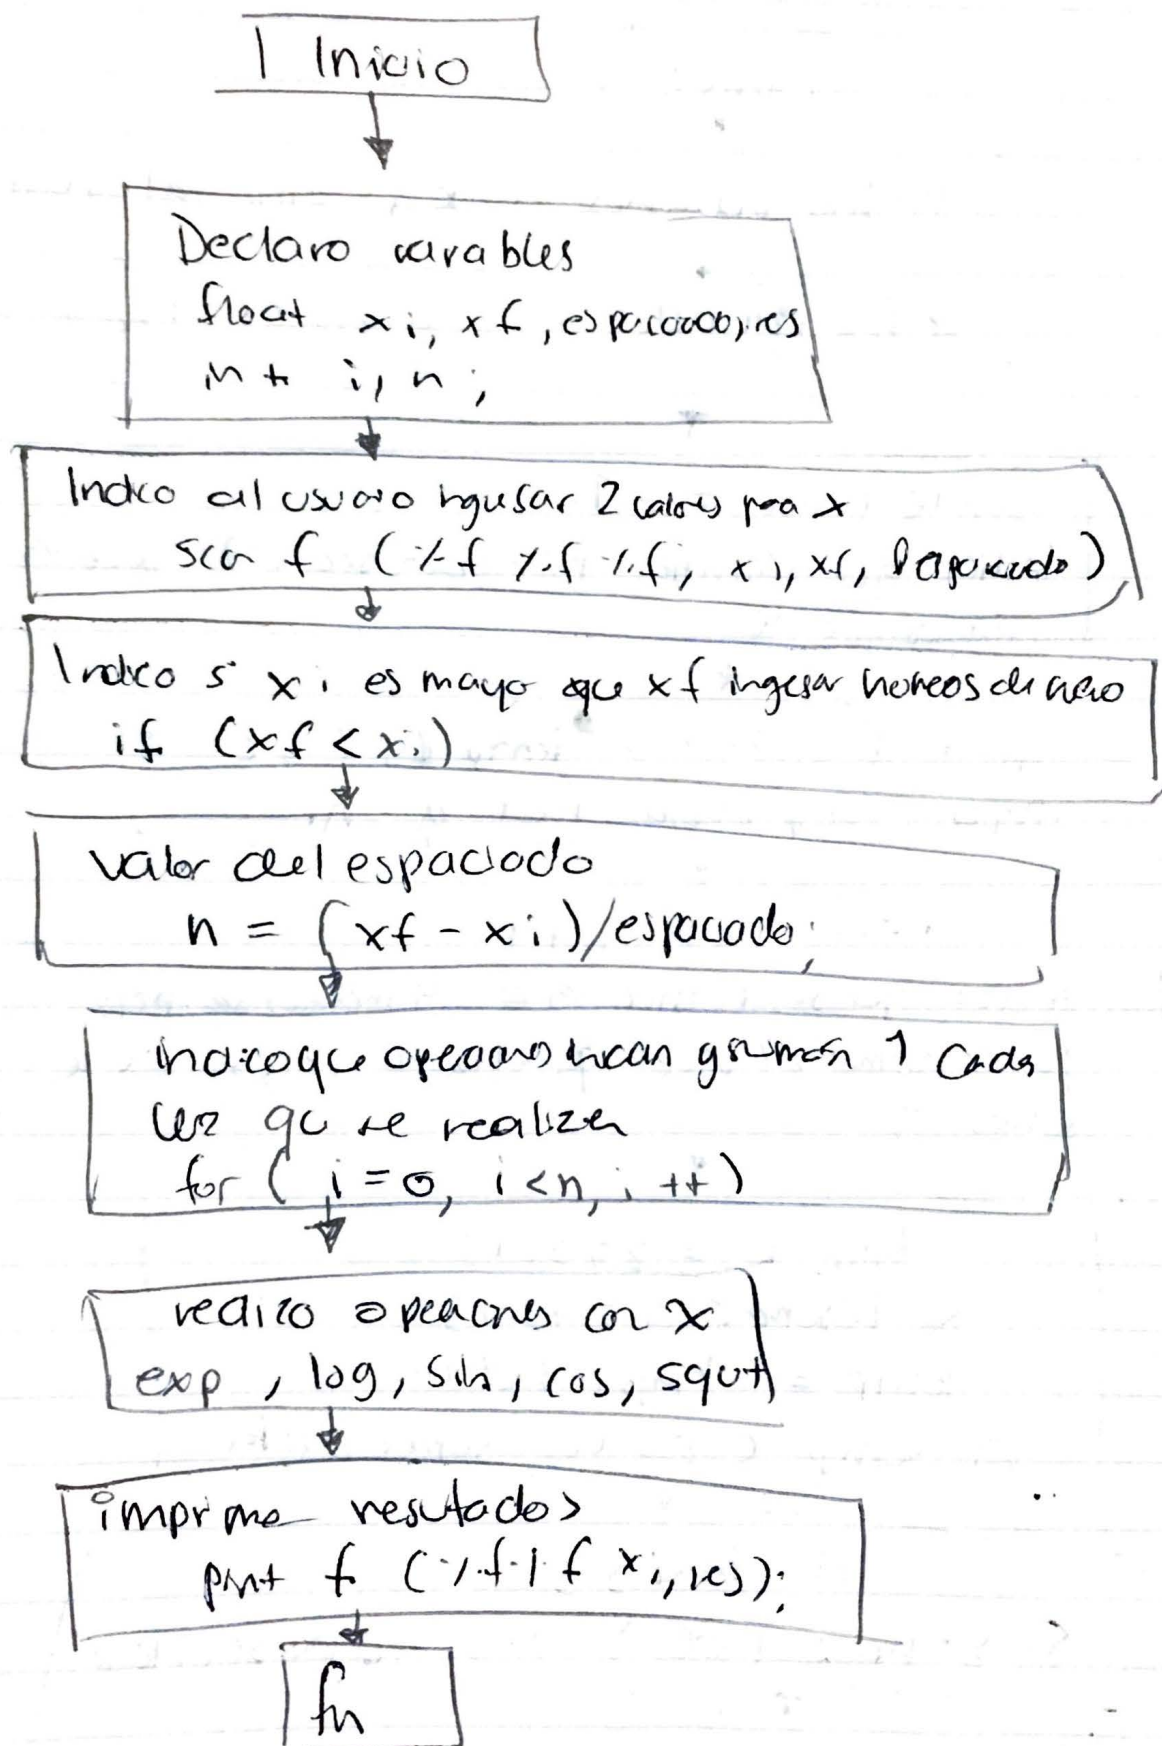 1 Inicio
Declaro varables
float xi, xf, espaciado, res
int i, n;
Indico al usuario ingresar 2 valores para x
scan f (%f %f %f, xi, xf, &espaciado)
Indico si xi es mayor que xf ingresar numeros de nuevo
if (xf < xi)
valor del espaciado
n = (xf - xi)/espaciado;
indico que operaciones 1 cada
vez que se realizen
for ( i=0, i<n, i ++)
realizo operaciones con x
exp, log, sin, cos, sqrt
imprime resultados
print f (%f %f xi, res);
fin